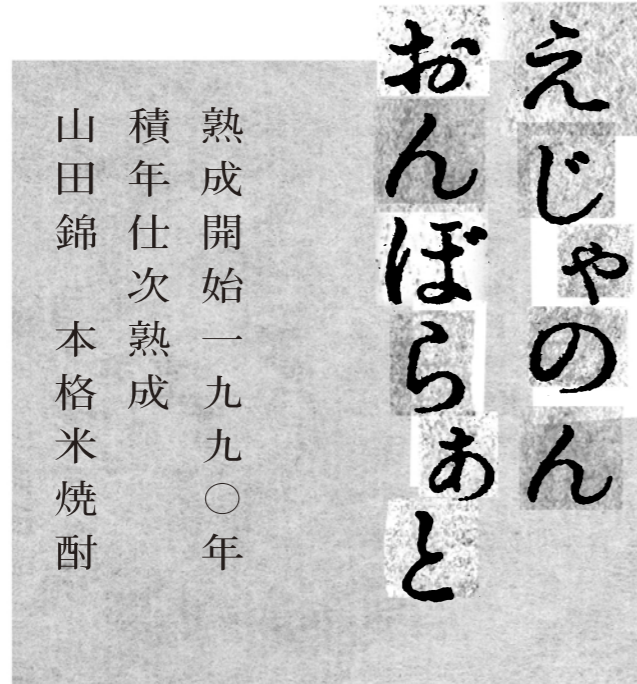 えじゃのん
おんぼらぁと
熟成開始一九九〇年
積年仕次熟成
山田錦　本格米焼酎